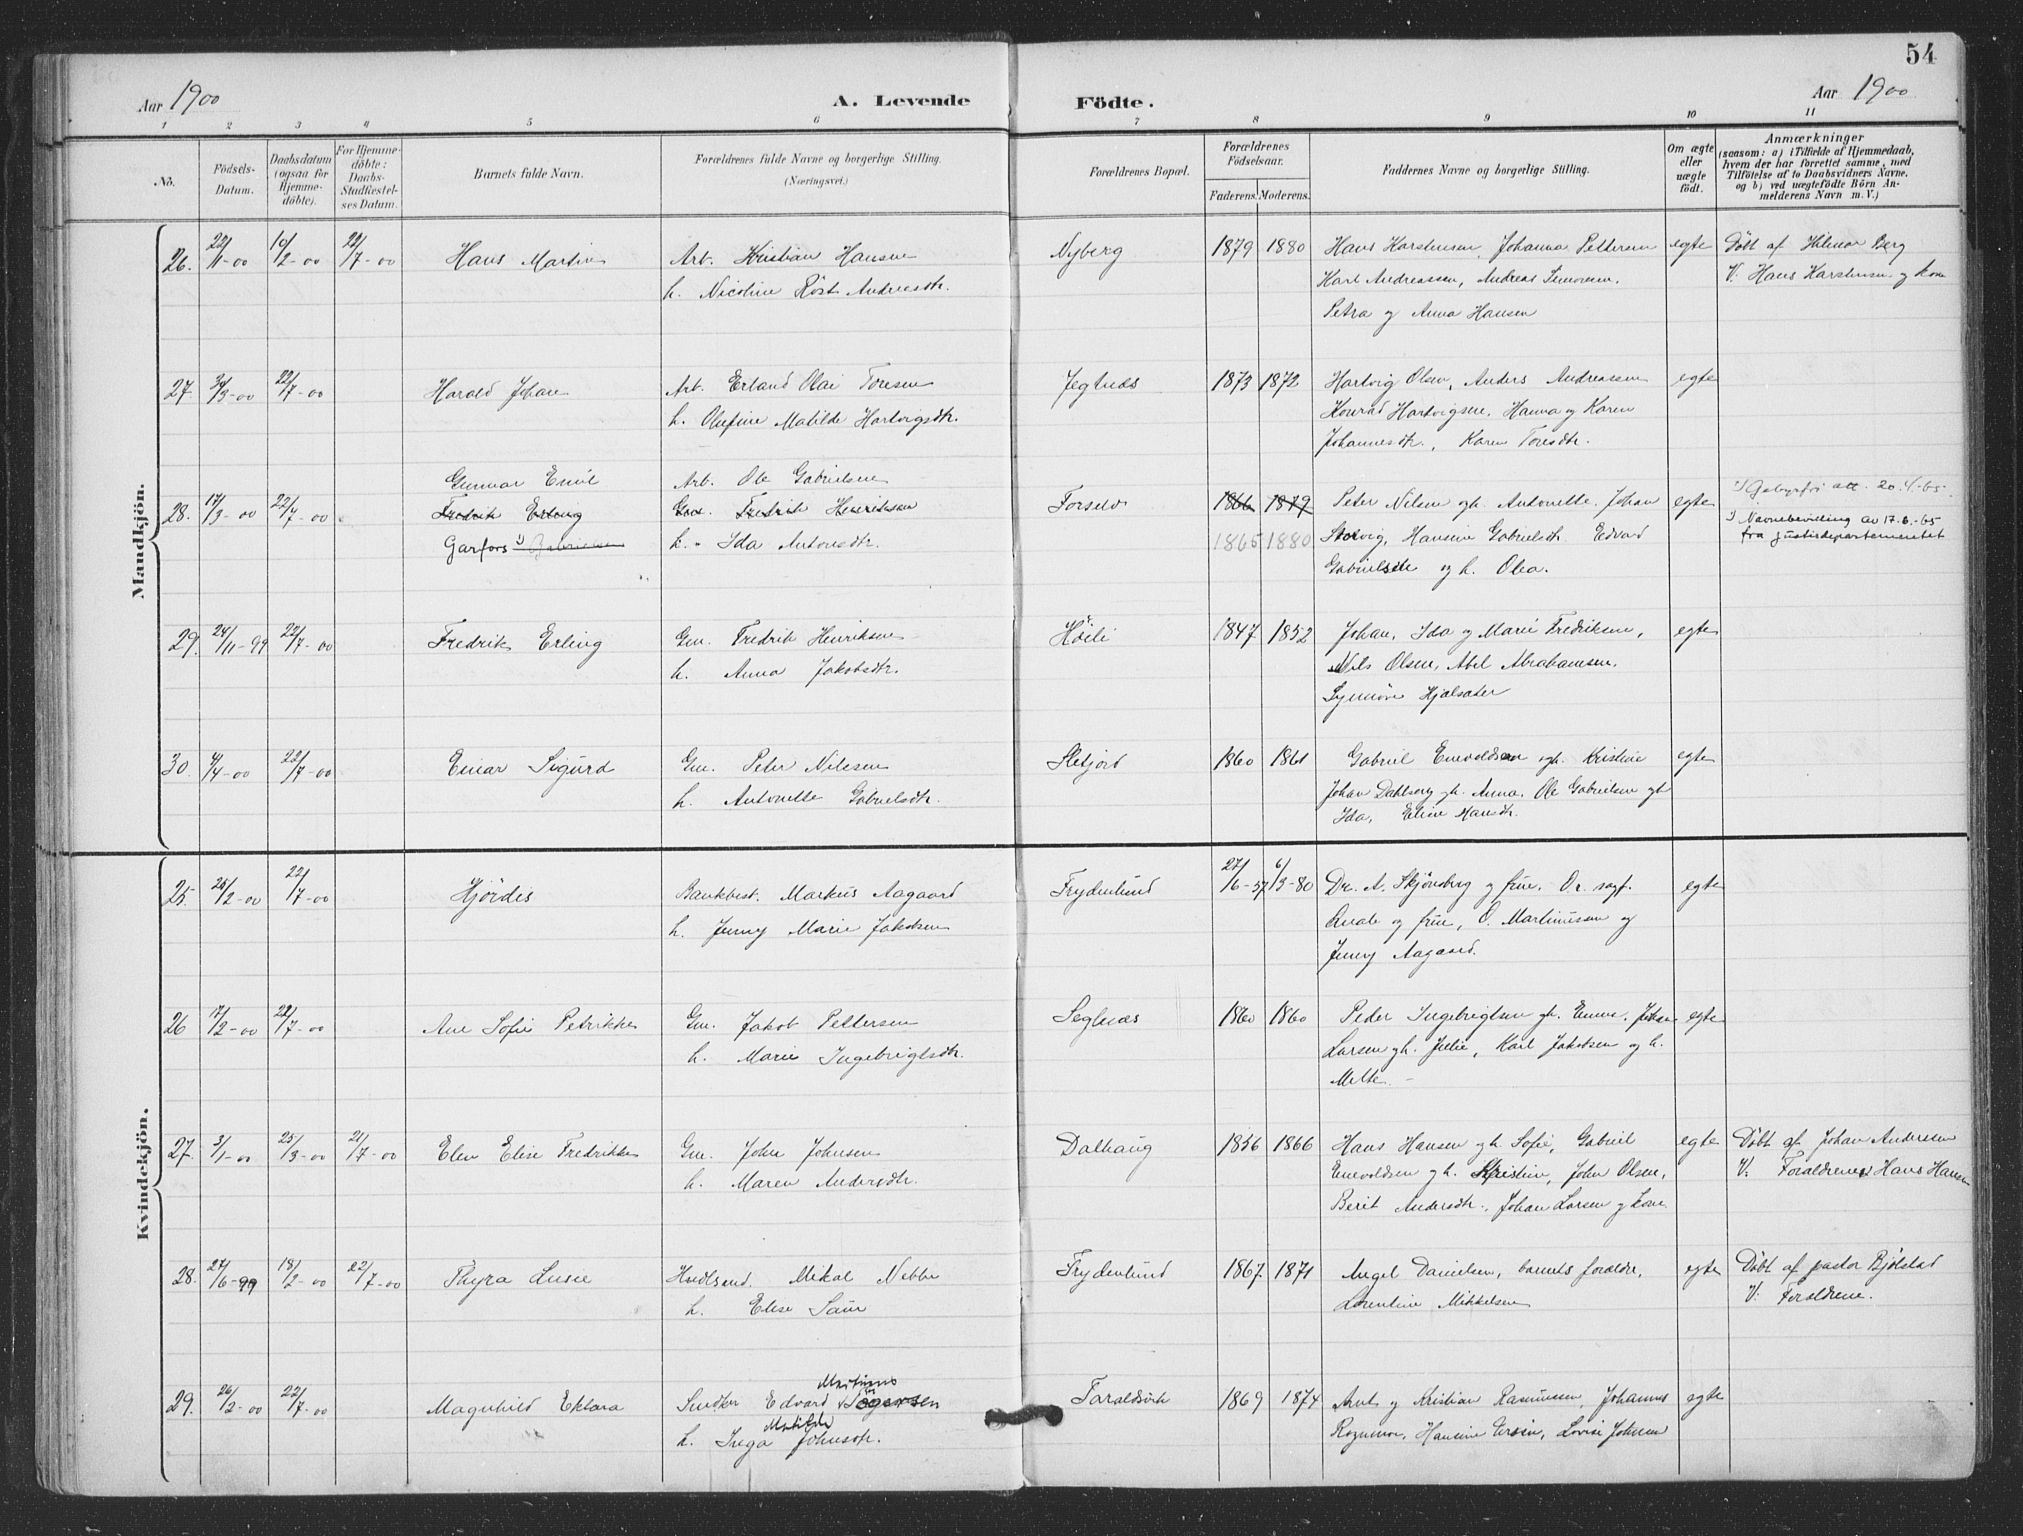 54
Aar 1900 A. Levende Födte. Aar 1900
1 2 3 4 5 6 7 8 9 10 11
No. Födsels-Datum. Daabsdatum (ogsaa for Hjemme-döbte). For Hjemme-döbte: Daabs-Stadfæstel-ses Datum. Barnets fulde Navn. Forældrenes fulde Navne og borgerlige Stilling. (Næringsvei.) Forældrenes Bopæl. Forældrenes Födselsaar. Faderens. Moderens. Faddernes Navne og borgerlige Stilling. Om ægte eller uægte födt. Anmærkninger (saasom: a) i Tilfælde af Hjemmedaab, hvem der har forrettet samme, med Tilföielse af to Daabsvidners Navne, og b) ved uægtefödte Börn An-melderens Navn m. V.)
Mandkjön.
26. 22/1-00 10/2-00 22/7-00 Hans Martin Arb. Kristian Hansen Nyberg 1879 1880 Hans Karstensen, Johanna Pettersen egte Døbt af Hilmar Berg
h. Nicoline Röst Andreasdtr. Karl Andreassen, Andreas V. Hans Karstensen og kone
Petra og Anna Hansen
27. 30/3-00 22/7-00 Harald Johan Arb. Erland Olai Toresen Jegtnes 1873 1872 Hartvig Olsen, Anders Andreassen egte
h. Olufine Matilde Hartvigsdtr. Konrad Hartvigsen, Hanna og Karen
Johannesdtr., Karen Toresdtr.
Gunnar Emil Arb. Ole Gabrielsen
28. 17/3-00 22/7-00 Fredrik Erling Gm. Fredrik Henriksen Forselv 1866 1879 Peter Nilsen gh. Antonette, Johan egte 1) Gebyrfri att. 20.4.-65.
Garfors 1) Gabrielsen h. Ida Antonsdtr. 1865 1880 Storvig, Hansine Gabrielsdtr. Edvard 1) Navnebevilling av 17.6.-65
Gabrielsen og h. Olea. fra Justisdepartementet
29. 24/11-99 22/7-00 Fredrik Erling Gm. Fredrik Henriksen Höili 1847 1852 Johan, Ida og Marie Fredriksen, egte
h. Anna Jakobsdtr. Nils Olsen, Abel Abrahamsen,
Synnöve Hjelsater
30. 4/4-00 22/7-00 Einar Sigurd Gm. Peter Nilsen Sletjord 1860 1861 Gabriel Enevoldsen gh. Kristine egte
h. Antonette Gabrielsdtr. Johan Dahlberg gh. Anna, Ole Gabrielsen gh
Ida, Eline Hansdtr.
Kvindekjön.
25. 25/2-00 22/7-00 Hjördis Bankbest. Markus Aagaard Frydenlund 27/6-57 6/3-80 Dr. A. Skjönsberg og frue, O.r. sagf. egte
h. Jenny Marie Jakobsen og frue, O. Martinussen og
Jenny Aagaard.
26 17/2-00 22/7-00 Ane Sofie Petrikke Gm. Jakob Pettersen Seglnes 1860 1860 Peder Ingebrigtsen gh. Emma, Johan egte
h. Marie Ingebrigtsdtr. Larsen gh. Julie, Karl Jakobsen og h.
Melte.
27. 3/1-00 25/3-00 21/7-00 Elen Elise Fredrikke Gm. John Johnsen Dalhaug 1856 1866 Hans Hansen gh. Sofie, Gabriel egte Døbt af Johan Andersen
h. Maren Andersdtr. Enevoldsen gh. Kristine, John Olsen, V. Forældrene, Hans Hansen
Berit Andersdtr., Johan Larsen og kone
28. 27/6-99 18/2-00 22/7-00 Thyra Lusie Hndlsend. Mikal Nebbe Frydenlund 1867 1871 Angel Danielsen, barnets foreldre, egte Døbt af pastor Bjölstad
h. Elise Saur Lorentine Mikkelsen V. Forældrene.
Martinus
29. 26/2-00 22/7-00 Magnhild Eklara Snedker Edvard Taraldsvik 1869 1874 Arnt og Kristian Rasmussen, Johannes egte
Matilde
h. Inga Johnsdtr. Hansine Lovise Johnsen